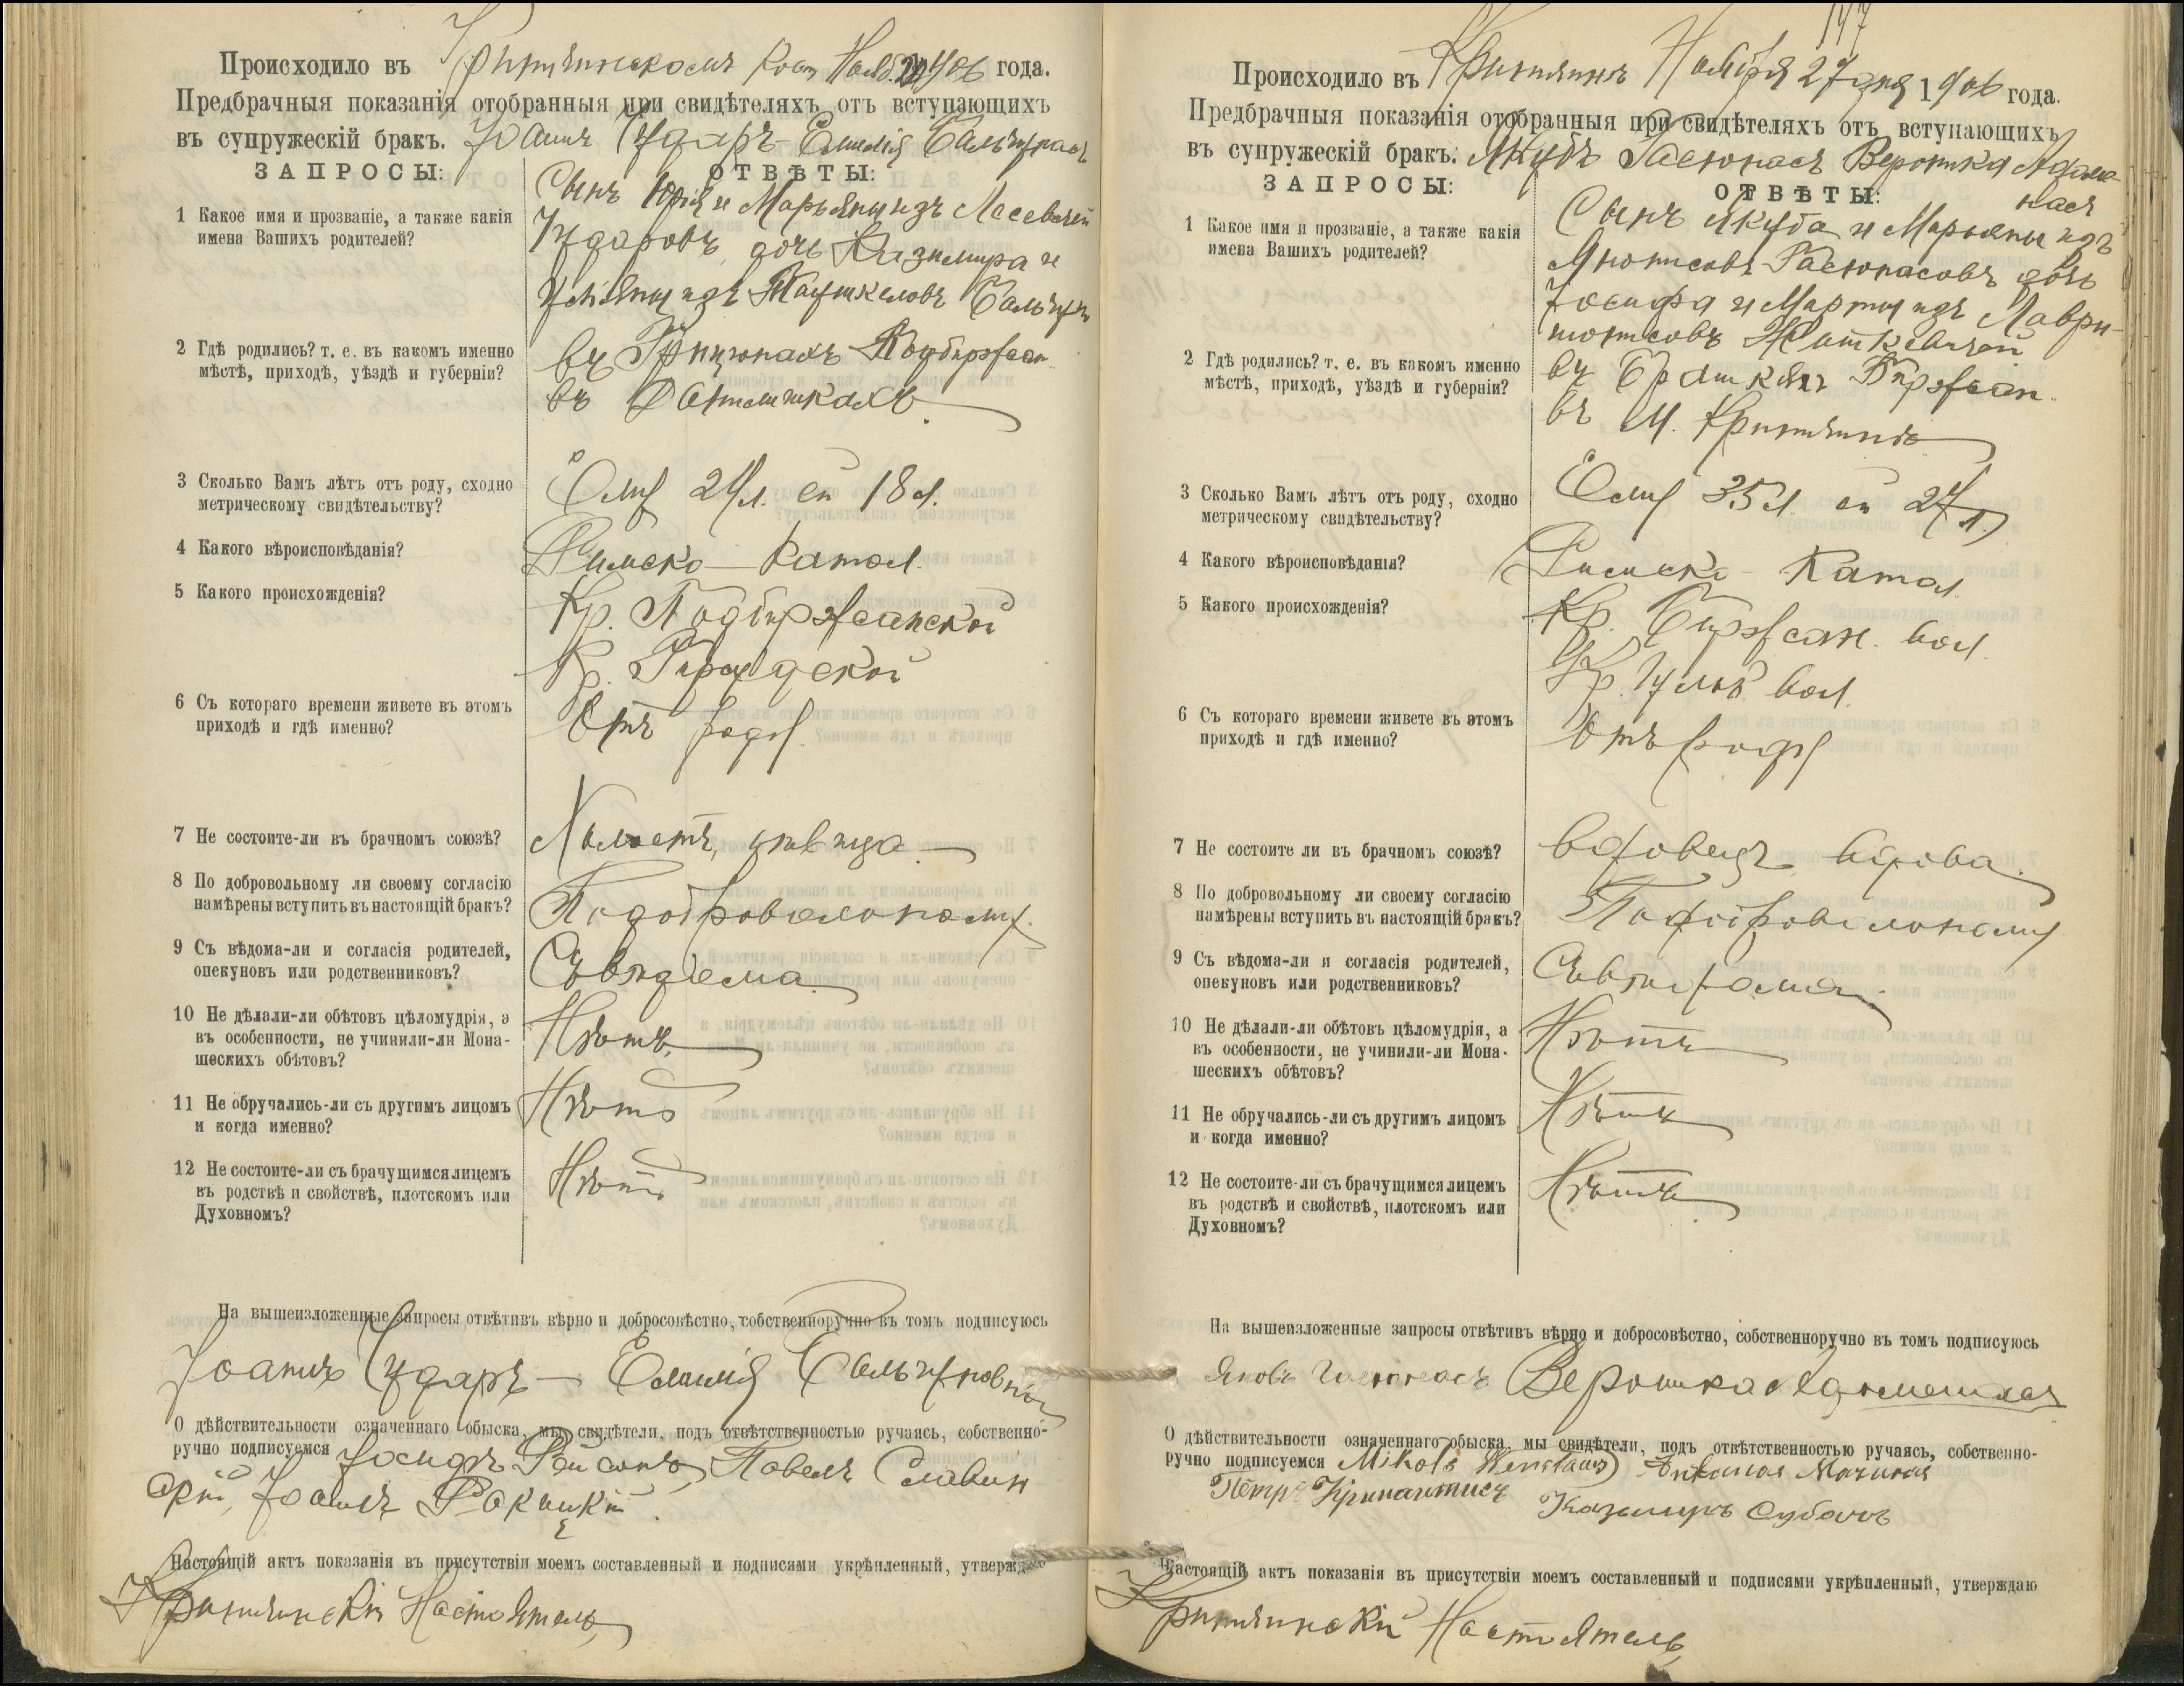 Происходило въ Критинскомъ Кост Нояб. 20 1906 года.
Предбрачныя показанія отобранныя при свидѣтеляхъ отъ вступающихъ
въ супружескій бракъ. Іоаннъ Цударъ Емилія Бальчунасъ
ЗАПРОСЫ:
ОТВѢТЫ:
1 Какое имя и прозваніе, а также какія
имена Вашихъ родителей?
Сынъ Юрія и Марьяны изъ
Цударовъ дочь Казимира и
изъ
2 Гдѣ родились? т. е. въ какомъ именно
мѣстѣ, приходѣ, уѣздѣ и губерніи?
въ
въ
3 Сколько Вамъ лѣтъ отъ роду, сходно
метрическому свидѣтельству?
Ему 24 л. ей 18 л.
4 Какого вѣроисповѣданія?
Римско-Катол.
5 Какого происхожденія?
Кр. Подбиржанской
Кр.
6 Съ котораго времени живете въ этомъ
приходѣ и гдѣ именно?
Отъ роду
7 Не состоите-ли въ брачномъ союзѣ?
Холостъ, дѣвица
8 По добровольному ли своему согласію
намѣрены вступить въ настоящій бракъ?
По добровольному
9 Съ вѣдома-ли и согласія родителей,
опекуновъ или родственниковъ?
Съ вѣдома
10 Не дѣлали-ли обѣтовъ цѣломудрія, а
въ особенности, не учинили-ли Мона-
шескихъ обѣтовъ?
Нѣтъ
11 Не обручались-ли съ другимъ лицомъ
и когда именно?
Нѣтъ
12 Не состоите-ли съ брачущимся лицемъ
въ родствѣ и свойствѣ, плотскомъ или
Духовномъ?
Нѣтъ
На вышеизложенные запросы отвѣтивъ вѣрно и добросовѣстно, собственноручно въ томъ подписуюсь
Іоаннъ Цударъ — Емилія
О дѣйствительности означеннаго обыска, мы свидѣтели, подъ отвѣтственностью ручаясь, собственно-
ручно подписуемся Іосифъ Павелъ
Іоаннъ
Настоящій актъ показанія въ присутствіи моемъ составленный и подписями укрѣпленный, утверждаю
Настоятель
147
Происходило въ Ноября 27 дня 1906 года.
Предбрачныя показанія отобранныя при свидѣтеляхъ отъ вступающихъ
въ супружескій бракъ. Якубъ Гасюнасъ Вероника Адамо-
ЗАПРОСЫ:
ОТВѢТЫ:
насъ
1 Какое имя и прозваніе, а также какія
имена Вашихъ родителей?
Сынъ Якуба и Марьяны изъ
Гасюнасовъ дочь
Іосифа и Марты изъ Лаври-
2 Гдѣ родились? т. е. въ какомъ именно
мѣстѣ, приходѣ, уѣздѣ и губерніи?
въ Биржан.
въ м.
3 Сколько Вамъ лѣтъ отъ роду, сходно
метрическому свидѣтельству?
Ему 35 л. ей 27 л.
4 Какого вѣроисповѣданія?
Римско-Катол.
5 Какого происхожденія?
Кр. Биржан. вол.
Кр. вол.
6 Съ котораго времени живете въ этомъ
приходѣ и гдѣ именно?
Отъ роду
7 Не состоите ли въ брачномъ союзѣ?
вдовецъ вдова
8 По добровольному ли своему согласію
намѣрены вступить въ настоящій бракъ?
По добровольному
9 Съ вѣдома-ли и согласія родителей,
опекуновъ или родственниковъ?
Съ вѣдома
10 Не дѣлали-ли обѣтовъ цѣломудрія, а
въ особенности, не учинили-ли Мона-
шескихъ обѣтовъ?
Нѣтъ
11 Не обручались-ли съ другимъ лицомъ
и когда именно?
Нѣтъ
12 Не состоите-ли съ брачущимся лицемъ
въ родствѣ и свойствѣ, плотскомъ или
Духовномъ?
Нѣтъ
На вышеизложенные запросы отвѣтивъ вѣрно и добросовѣстно, собственноручно въ томъ подписуюсь
Яковъ Гасюнасъ Вероника
О дѣйствительности означеннаго обыска, мы свидѣтели, подъ отвѣтственностью ручаясь, собственно-
ручно подписуемся Mikols
Петръ Казимиръ
Настоящій актъ показанія въ присутствіи моемъ составленный и подписями укрѣпленный, утверждаю
Настоятель